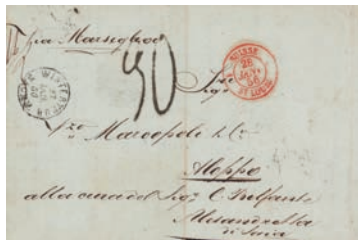 via Marseglia
90
SUISSE
28
JANV
56
ST LOUIS
WINTERTHUR
Sigri
Marcopoli & Co
Aleppo
alla cura del Sigr C. Belfante
Alessandretta
di Soria